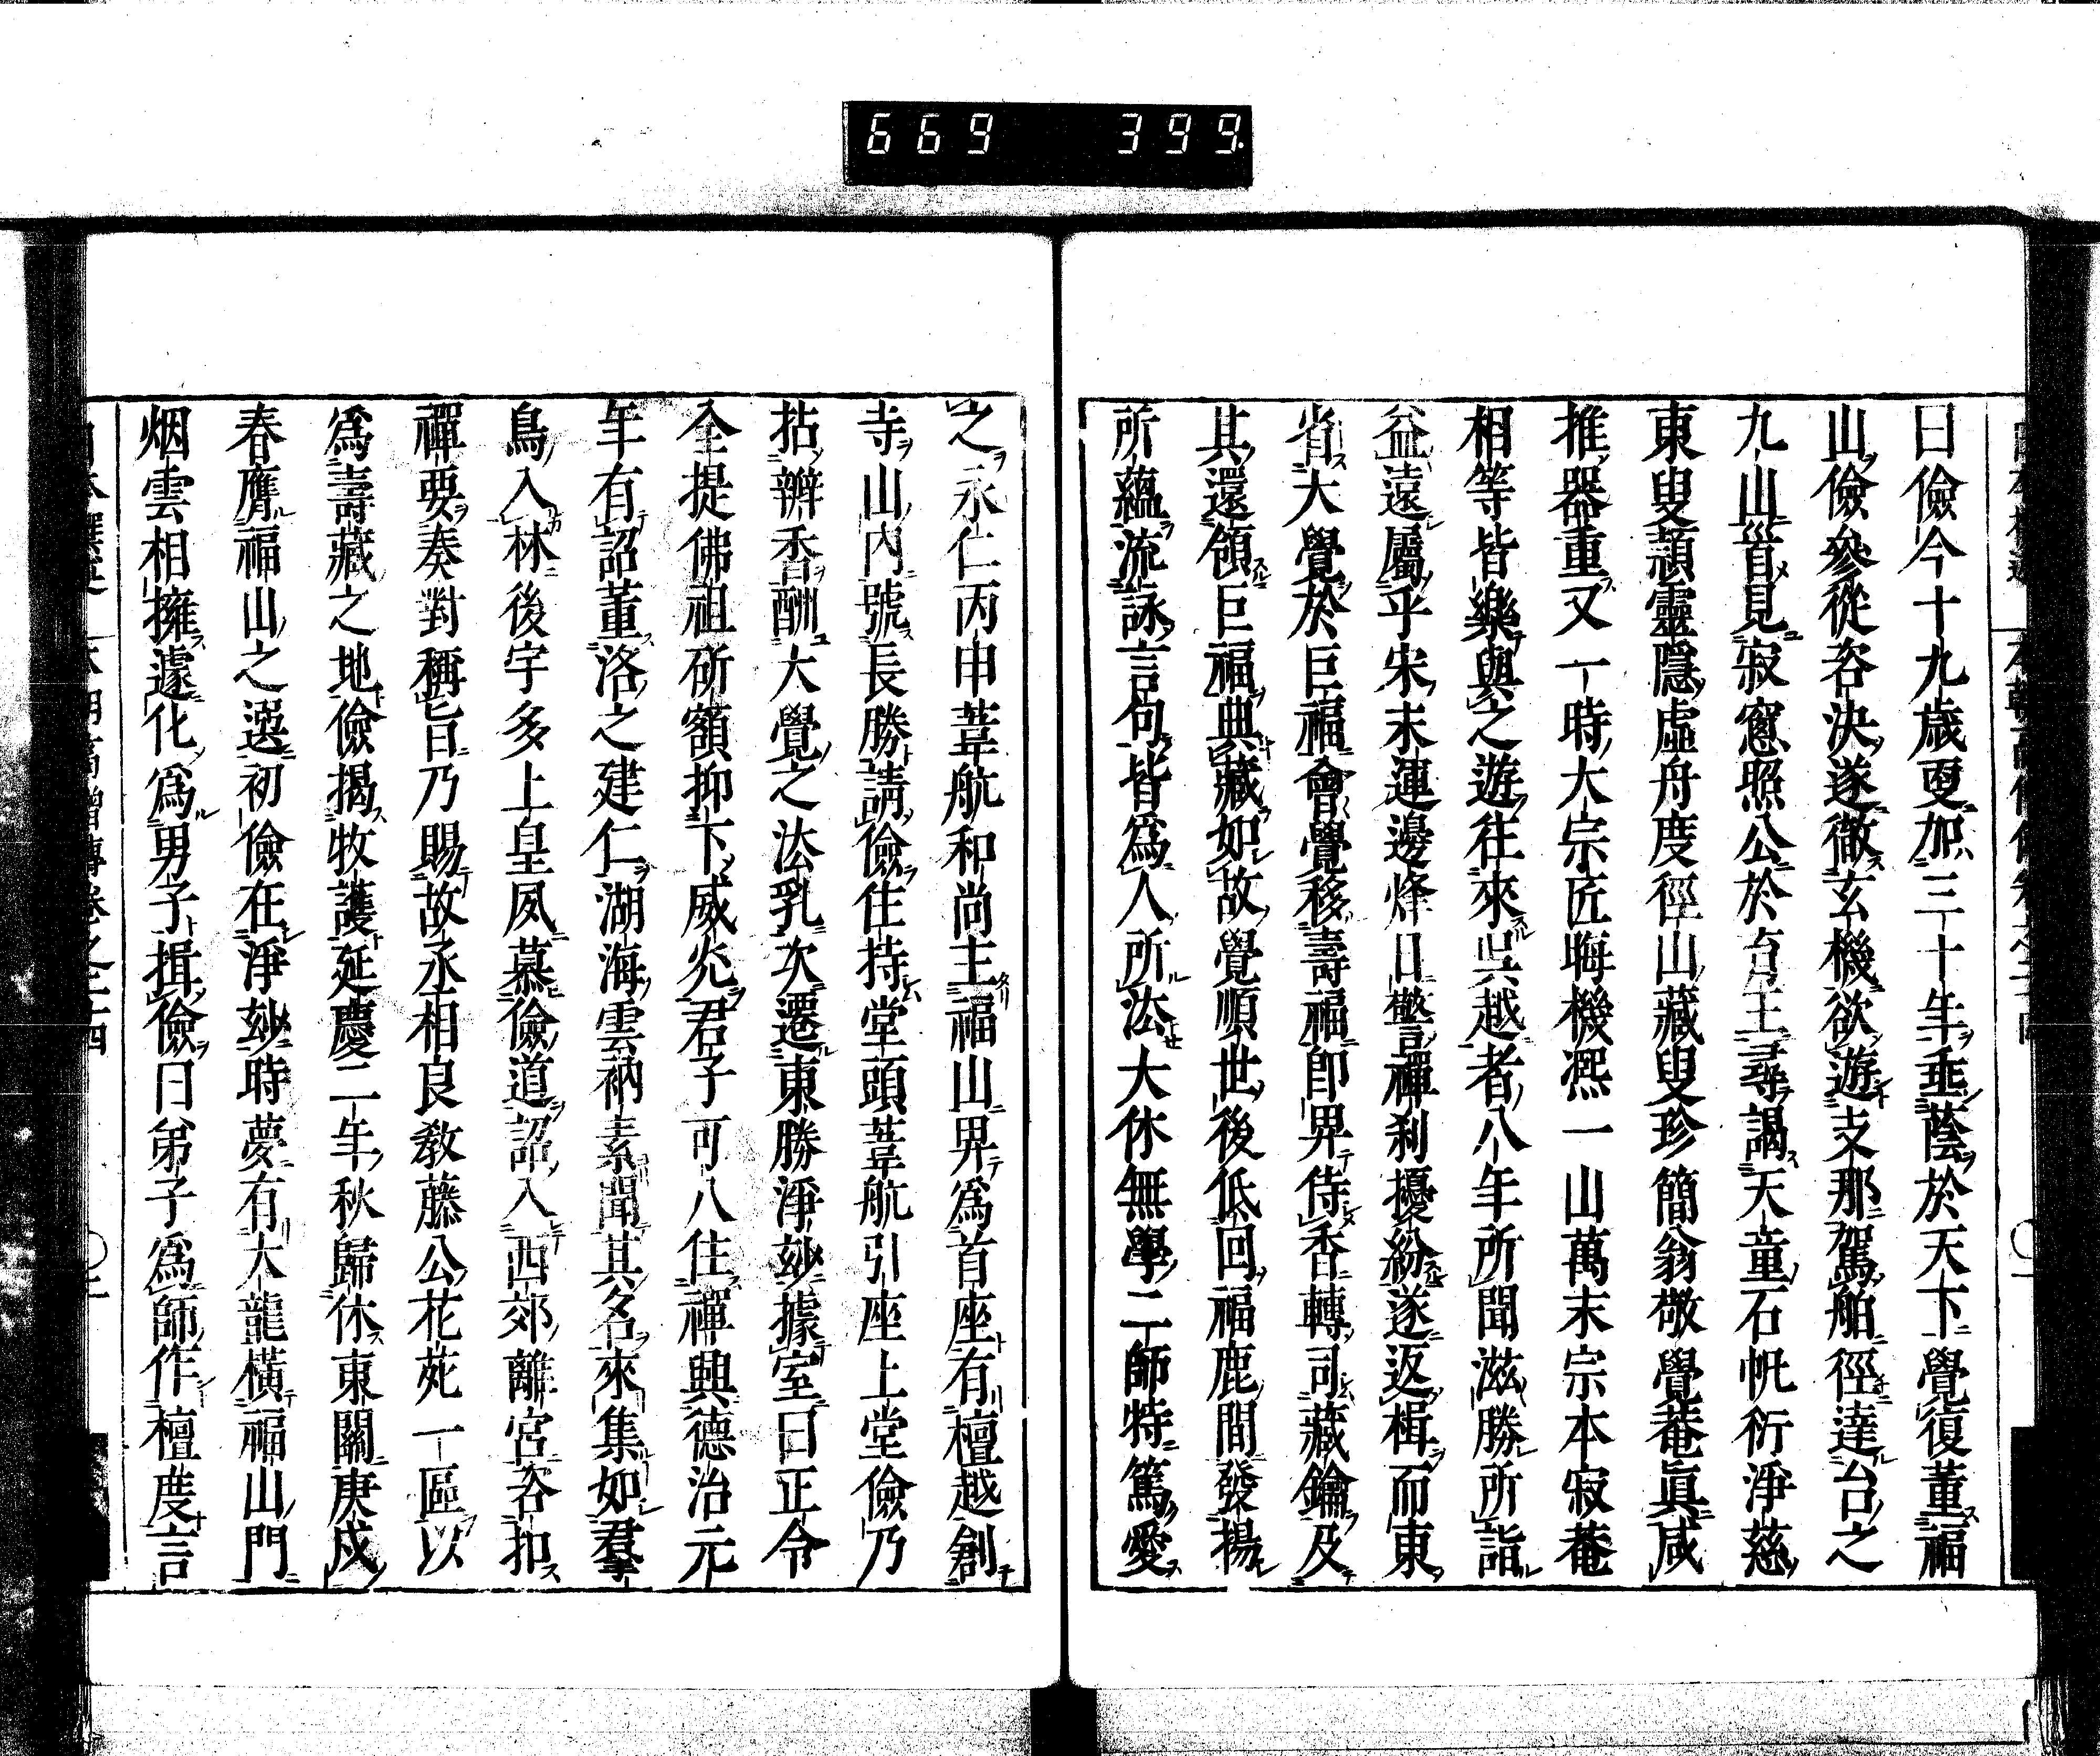 669 399
曰儉今十九歲更加三十年垂蔭於天下覺復董福
山儉參從容決遂徹玄機欲遊支那駕舶徑達台之
九山首見寂窓照公於台王尋謁天童石帆衍淨慈
東叟頴靈隱虛舟度徑山藏叟珍簡翁敬覺菴眞咸
推器重又一時大宗匠晦機凞一山萬末宗本寂菴
相等皆樂與之遊往來吳越者八年所聞滋勝所詣
益遠屬乎宋末運邊烽日警禪刹擾紛遂返楫而東
省大覺於巨福會覺移壽福卽畀侍香轉司藏鑰及
其還領巨福典藏如故覺順世後低回福鹿間發揚
所蘊流詠言句皆爲人所法大休無學二師特篤愛
之永仁丙申葦航和尚主福山畀爲首座有檀越創
寺山內號長勝請儉住持堂頭葦航引座上堂儉乃
拈辧香酬大覺之法乳次遷東勝淨玅據室曰正令
全提佛祖斫額抑下威光君子可八住禪興德治元
年有詔董洛之建仁湖海雲衲素聞其名來集如羣
鳥入林後宇多上皇夙慕儉道詔入西郊離宮咨扣
禪要奏對稱旨乃賜故丞相良敎藤公花苑一區以
爲壽藏之地儉揭牧護延慶二年秋歸休東關庚戌
春膺福山之選初儉在淨玅時夢有大龍橫福山門
烟雲相擁遽化爲男子揖儉曰弟子爲師作檀度言